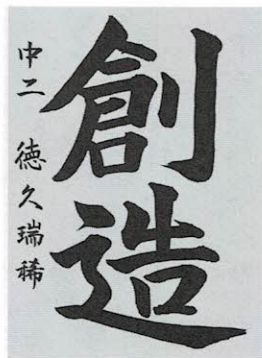 創造
中二 徳久瑞稀